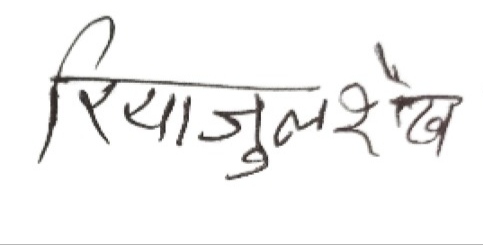 रियाजुल शेख